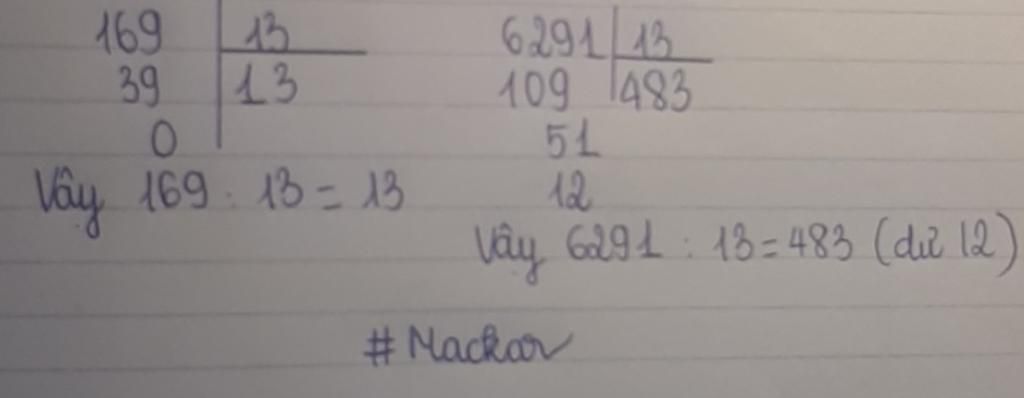 169 13
39 13
0
Vậy 169 : 13 = 13
6291 13
109 483
51
12
Vậy 6291 : 13 = 483 (dư 12)
# Mackar